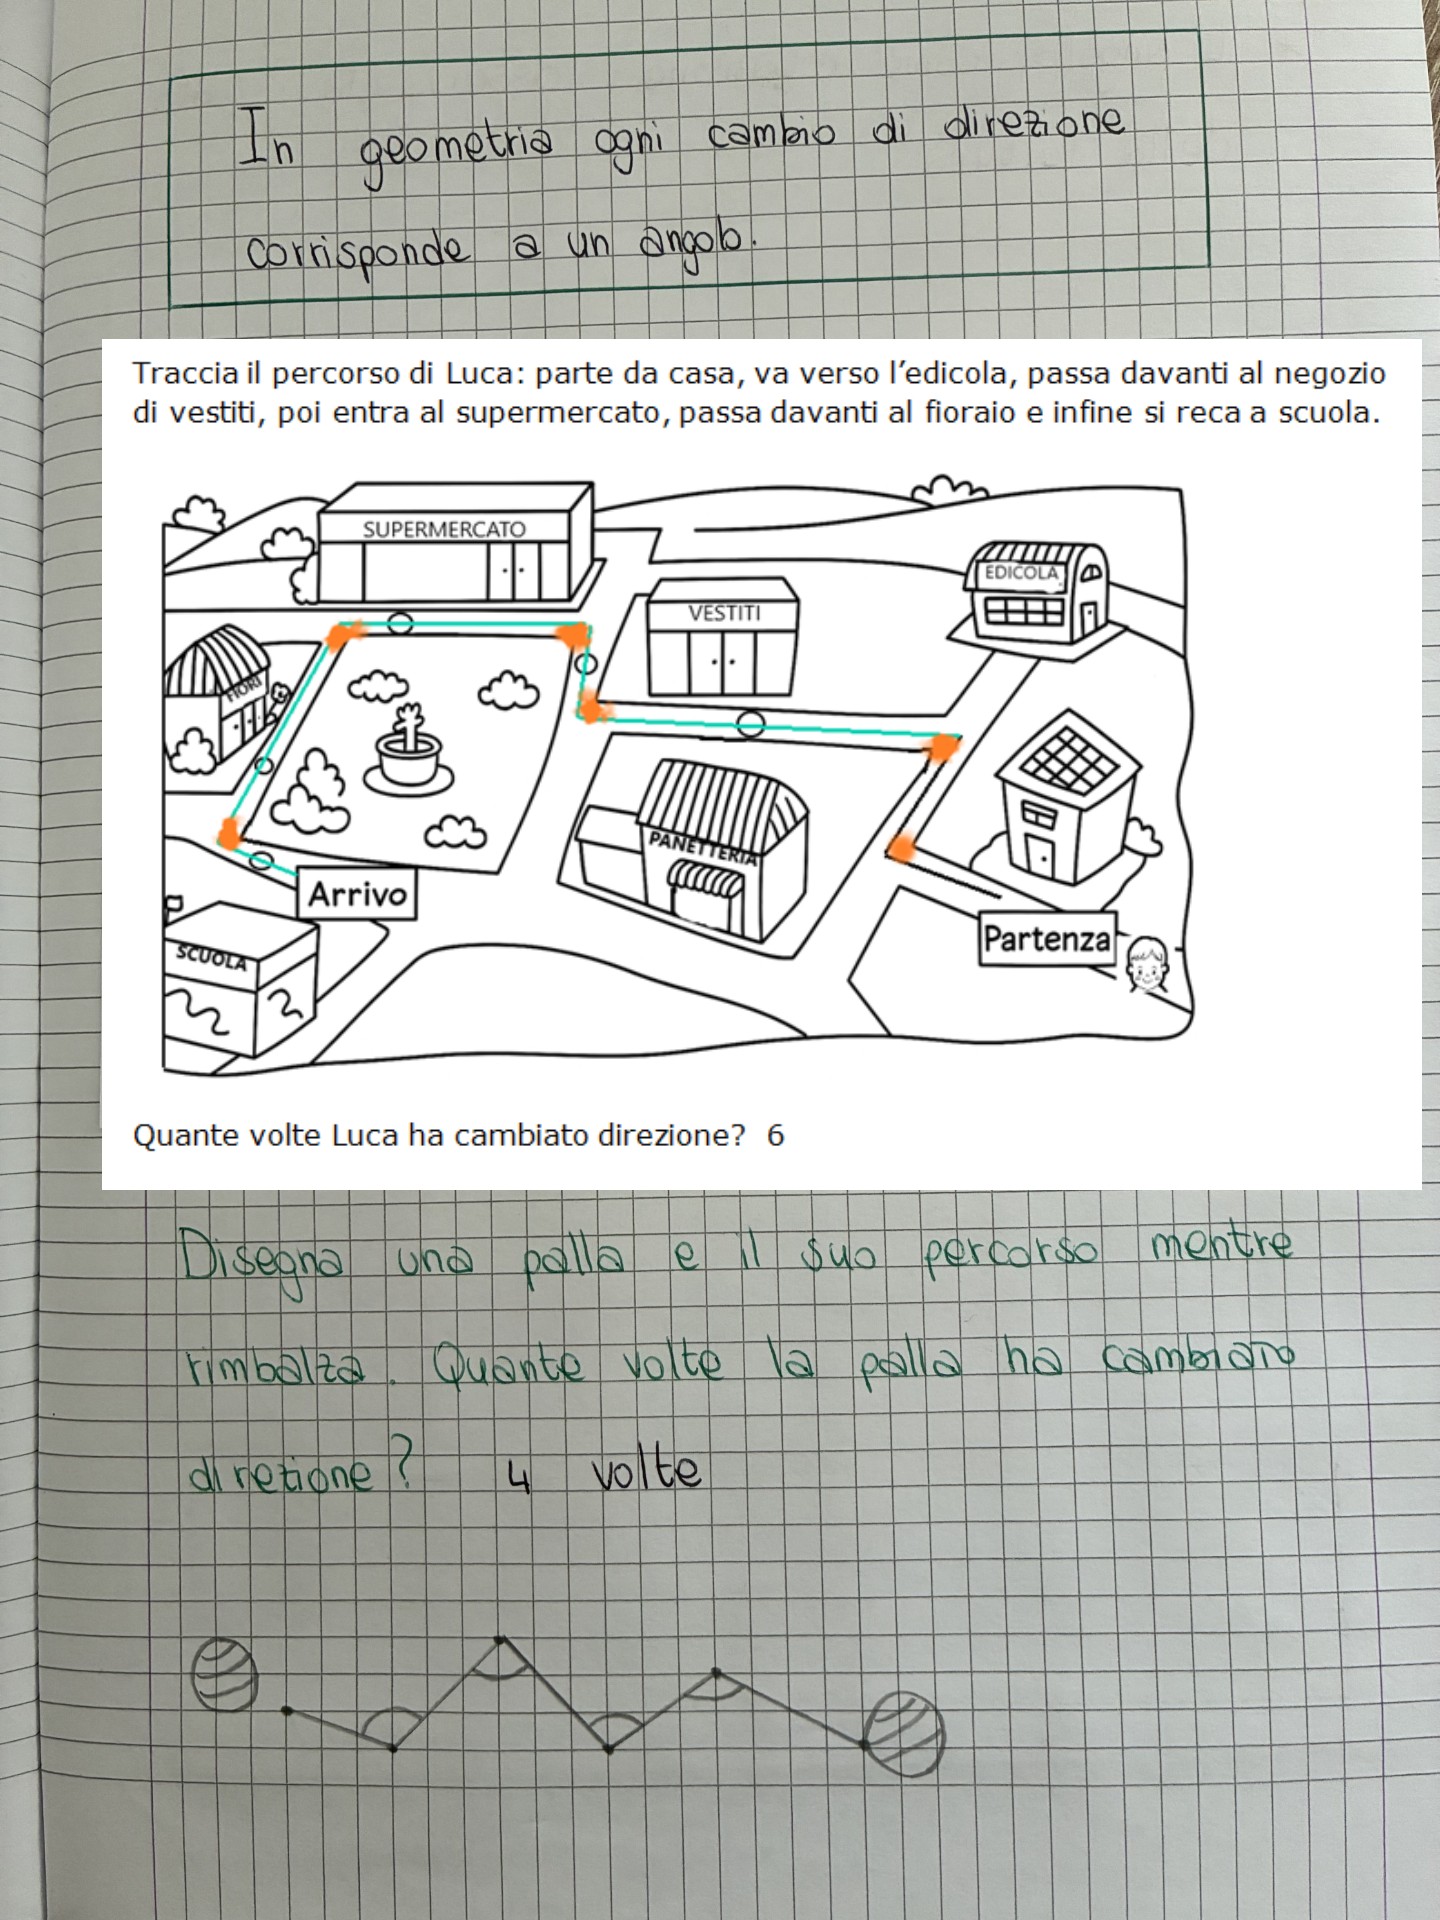 In geometria ogni cambio di direzione
corrisponde a un angolo.
Traccia il percorso di Luca: parte da casa, va verso l'edicola, passa davanti al negozio
di vestiti, poi entra al supermercato, passa davanti al fioraio e infine si reca a scuola.
SUPERMERCATO
EDICOLA
VESTITI
FIORI
PANETTERIA
Arrivo
Partenza
SCUOLA
Quante volte Luca ha cambiato direzione? 6
Disegna una palla e il suo percorso mentre
rimbalza. Quante volte la palla ha cambiato
direzione? 4 volte